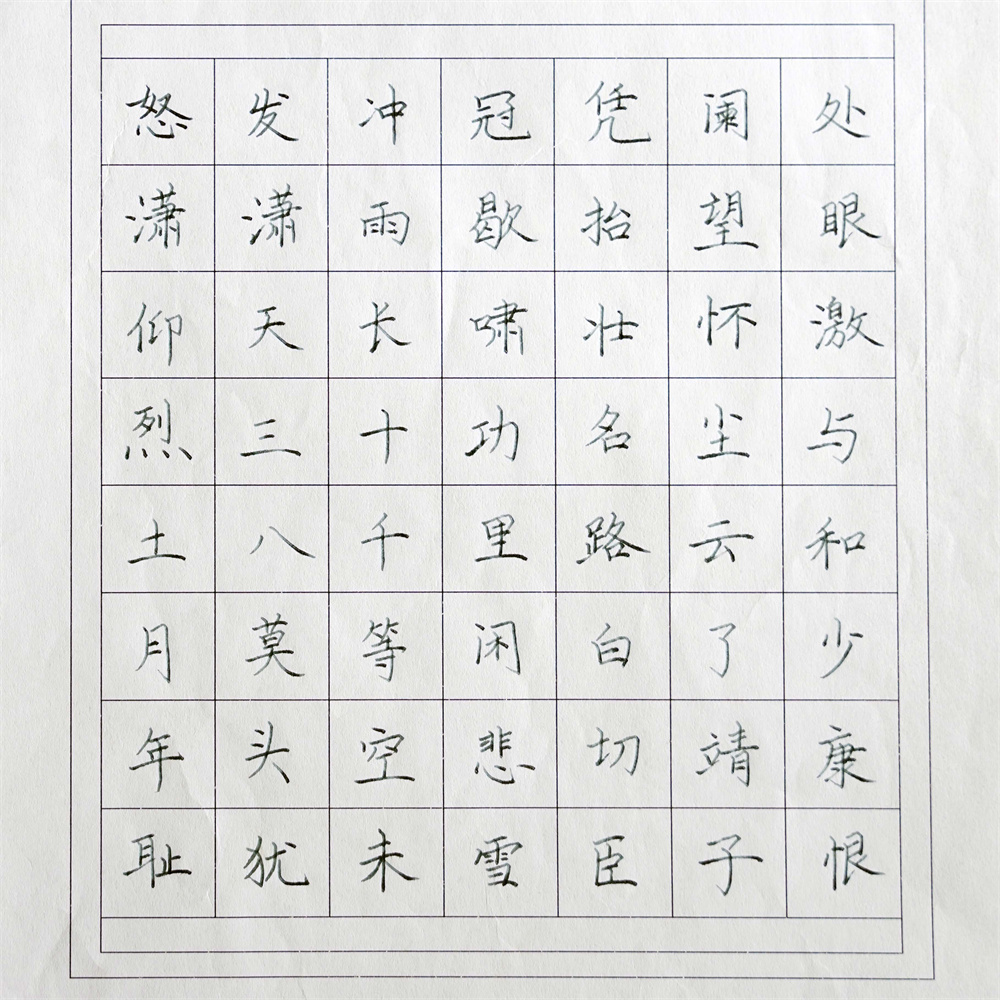 怒发冲冠凭阑处
潇潇雨歇抬望眼
仰天长啸壮怀激
烈三十功名尘与
土八千里路云和
月莫等闲白了少
年头空悲切靖康
耻犹未雪臣子恨